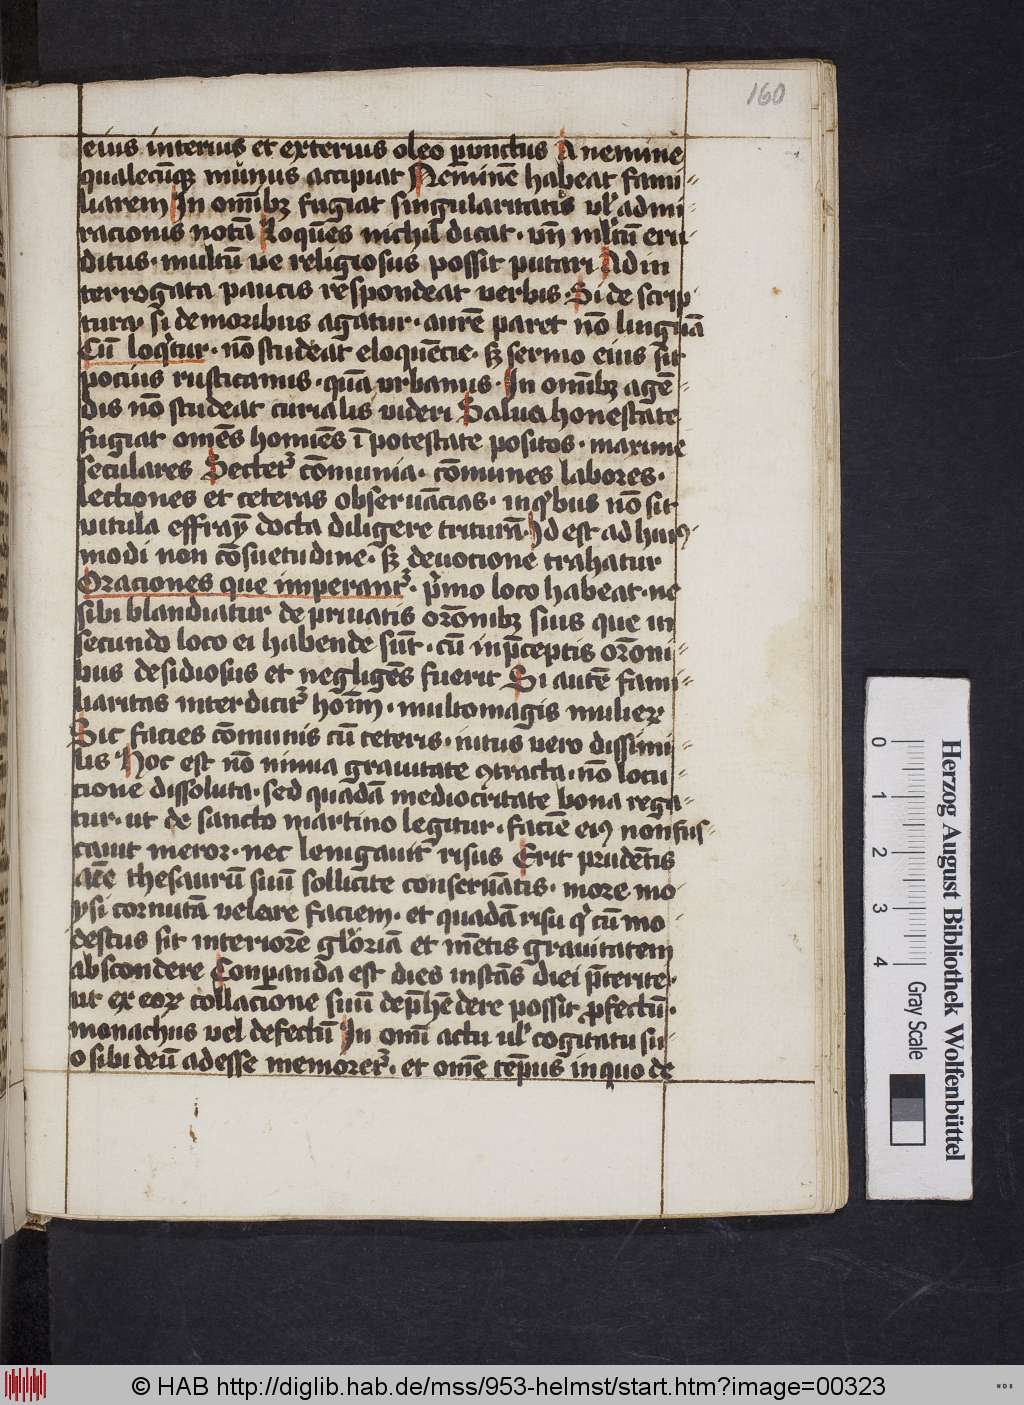 160
eius interius et exterius oleo ꝑunctus A nemine
qualecūqꝫ mūnus accipiat Neminē habeat fami⸗
liarem In omībꝫ fugiat singularitatis vl' admi⸗
racionis notā Loquēs nichil dicat · vn̄ mltū eru⸗
ditus · multū ve religiosus possit putari Ad in
terrogata paucis respondeat verbis · Si de scrip⸗
tura si de moribus agatur · aurē paret nō linguā
Cū loqͥtur · nō studeat eloquēcie · sꝫ sermo eius sit
pocius rusticanus · quā vrbanus · In omībꝫ agē⸗
dis nō studeat curialis videri Salua honestate
fugiat omēs homiēs ī potestate positos · maxime
seculares Sectet' cōmunia · cōmunes labores ·
lectiones et ceteras obseruācias · inqͥbus nō sit
vitula effraȳ docta diligere triturā · Id est ad huiꝰ⸗
modi non cōsuetudine · sꝫ deuotione trahatur
Oraciones que imperant' · pͥmo loco habeat · ne
sibi blandiatur de priuatis orōnibꝫ suis que in
secundo loco ei habende sūt · cū in p̄ceptis orōni⸗
bus desidiosus et negligēs fuerit Si autē fami⸗
liaritas interdicit' hoīm · multomagis mulieꝝ
Sic facies cōmunis cū ceteris · intus vero dissimi⸗
lis Hoc est nō nimia grauitate ꝯtracta · nō locu⸗
cione dissoluta · sed quadā mediocritate bona rega⸗
tur · ut de sancto martino legitur · faciē eiꝰ non fus⸗
cauit meror · nec leuigauit risus Erit prudētis
aīe thesaurū suū sollicite conseruātis · more mo⸗
ysi cornutā velare faciem · et quadā risu qͥ cū mo
destus sit interiorē gloriā et mētis grauitatem
abscondere Conꝑanda est dies instās diei p̄terite ·
ut ex eoꝝ collacione suū dep̄hēdere possit ꝓfectū ·
monachus vel defectū In omī actu vl' cogitatu su⸗
o sibi deū adesse memoret' · et omē tēpus in quo de
Herzog August Bibliothek Wolfenbüttel
0 1 2 3 4 Gray Scale
© HAB http://diglib.hab.de/mss/953-helmst/start.htm?image=00323